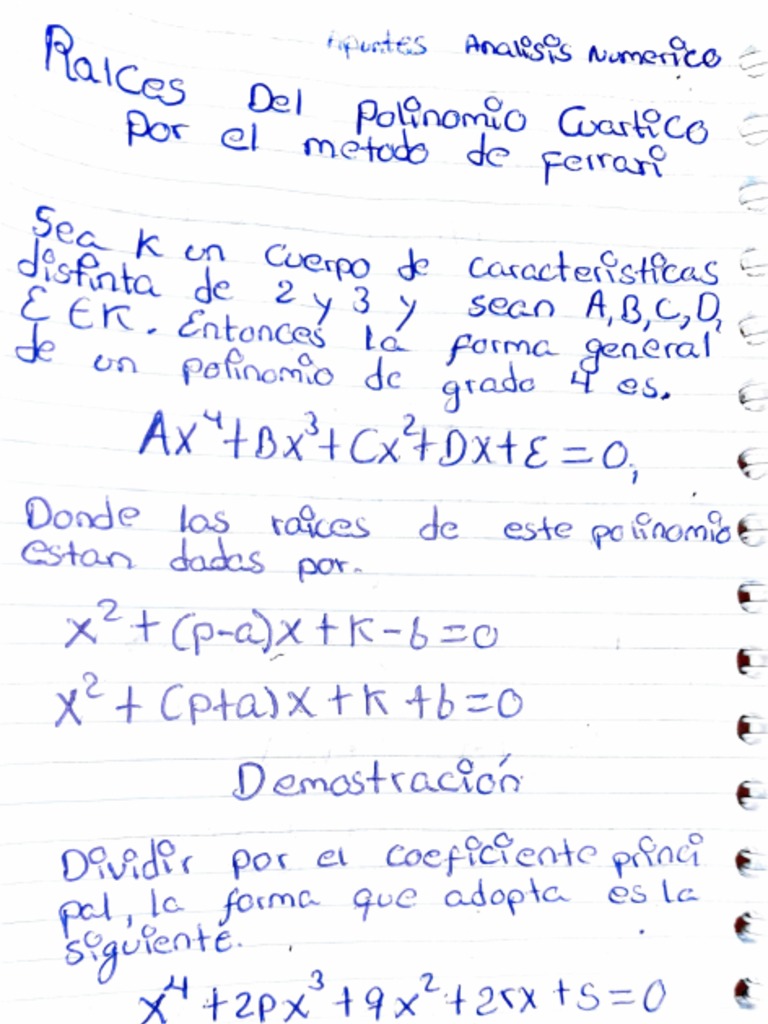 Apuntes Analisis Numerico
Raices Del polinomio Cuartico
por el metodo de ferrari
Sea K un cuerpo de caracteristicas
distinta de 2 y 3 y sean A,B,C,D,
E ∈ K. Entonces la forma general
de un polinomio de grado 4 es.
Ax⁴+Bx³+Cx²+Dx+E=0,
Donde las raices de este polinomio
estan dadas por.
x²+(p-a)x+K-b=0
x²+(p+a)x+K+b=0
Demostración
Dividir por el coeficiente princi
pal, la forma que adopta es la
siguiente.
x⁴+2px³+qx²+2rx+s=0